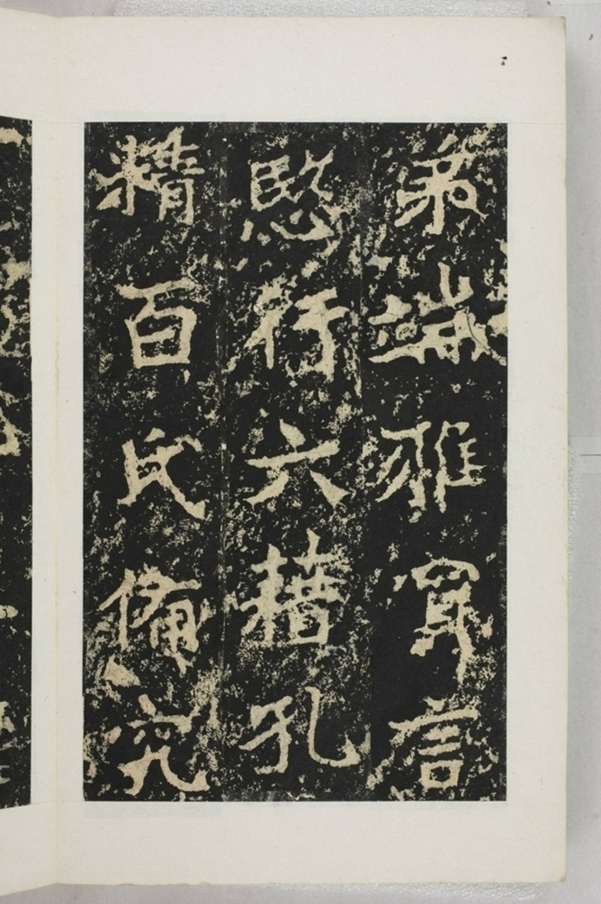 弟端雅寡言
愍行六藉孔
精百氏備究